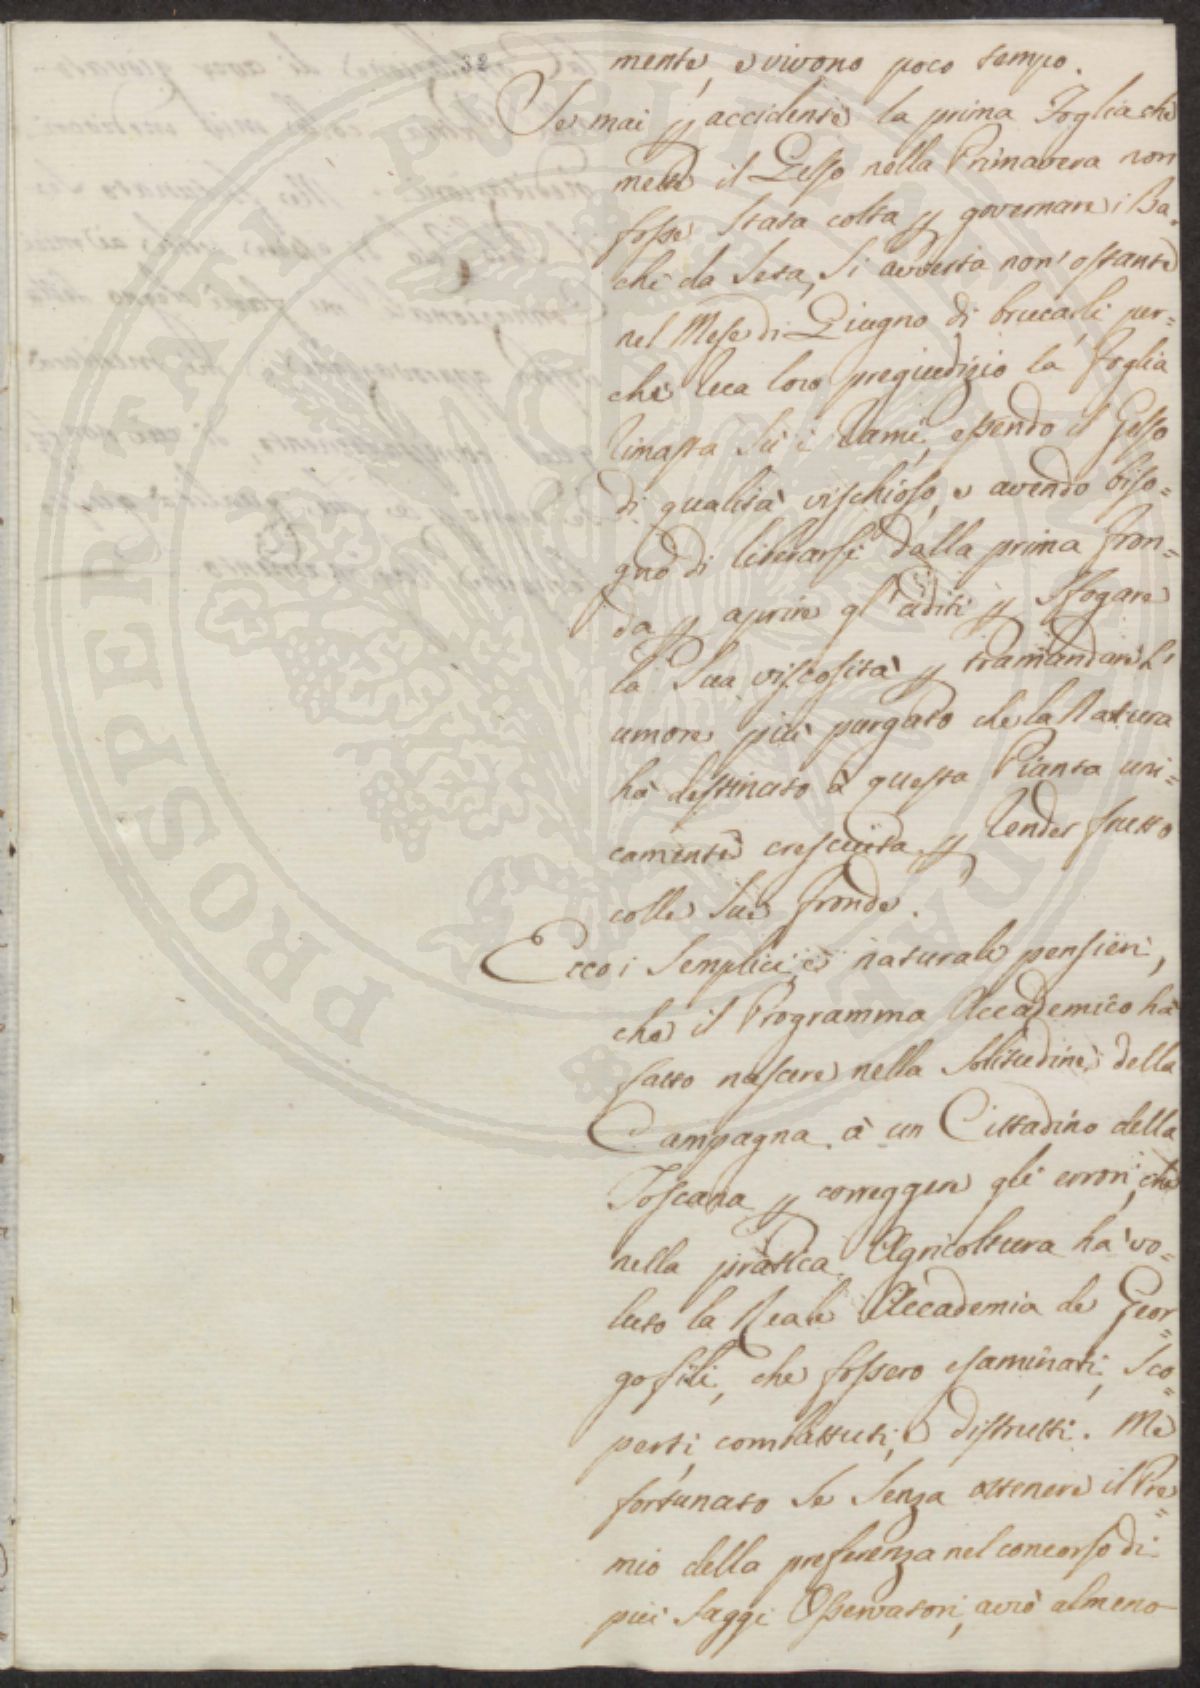 32
mente, e vivono poco tempo.
Se mai p accidente la prima Foglia che
mette il Gelso nella Primavera non
fosse stata colta p governare i Ba=
chi da Seta, Si avverta non'ostante
nel Mese di Giugno di brucarli per=
che reca loro pregiudizio la foglia
rimasta Su i rami, essendo il Gelso
di qualità vischioso, e avendo biso=
gno di liberarsi dalla prima fron=
da p aprire gl'aditi p sfogare
la Sua viscosità p tramandare l'
umore più purgato che la Natura
hà destinato à questa Pianta uni=
camente cresciuta p render frutto
colle Sue fronde.
Ecco i Semplici, e naturale pensieri,
che il Programma Accademico hà
fatto nascere nella Solitudine della
Campagna à un Cittadino della
Toscana p correggere gli errori, che
nella pratica Agricoltura hà vo=
luto la Reale Accademia de Geor=
gofili, che fossero esaminati, Sco=
perti, combattuti, e distrutti. Me
fortunato Se Senza ottenere il Pre=
mio della preferenza nel concorso di
più Saggi Osservatori, avrò almeno
PROSPERITATI PUBLICAE